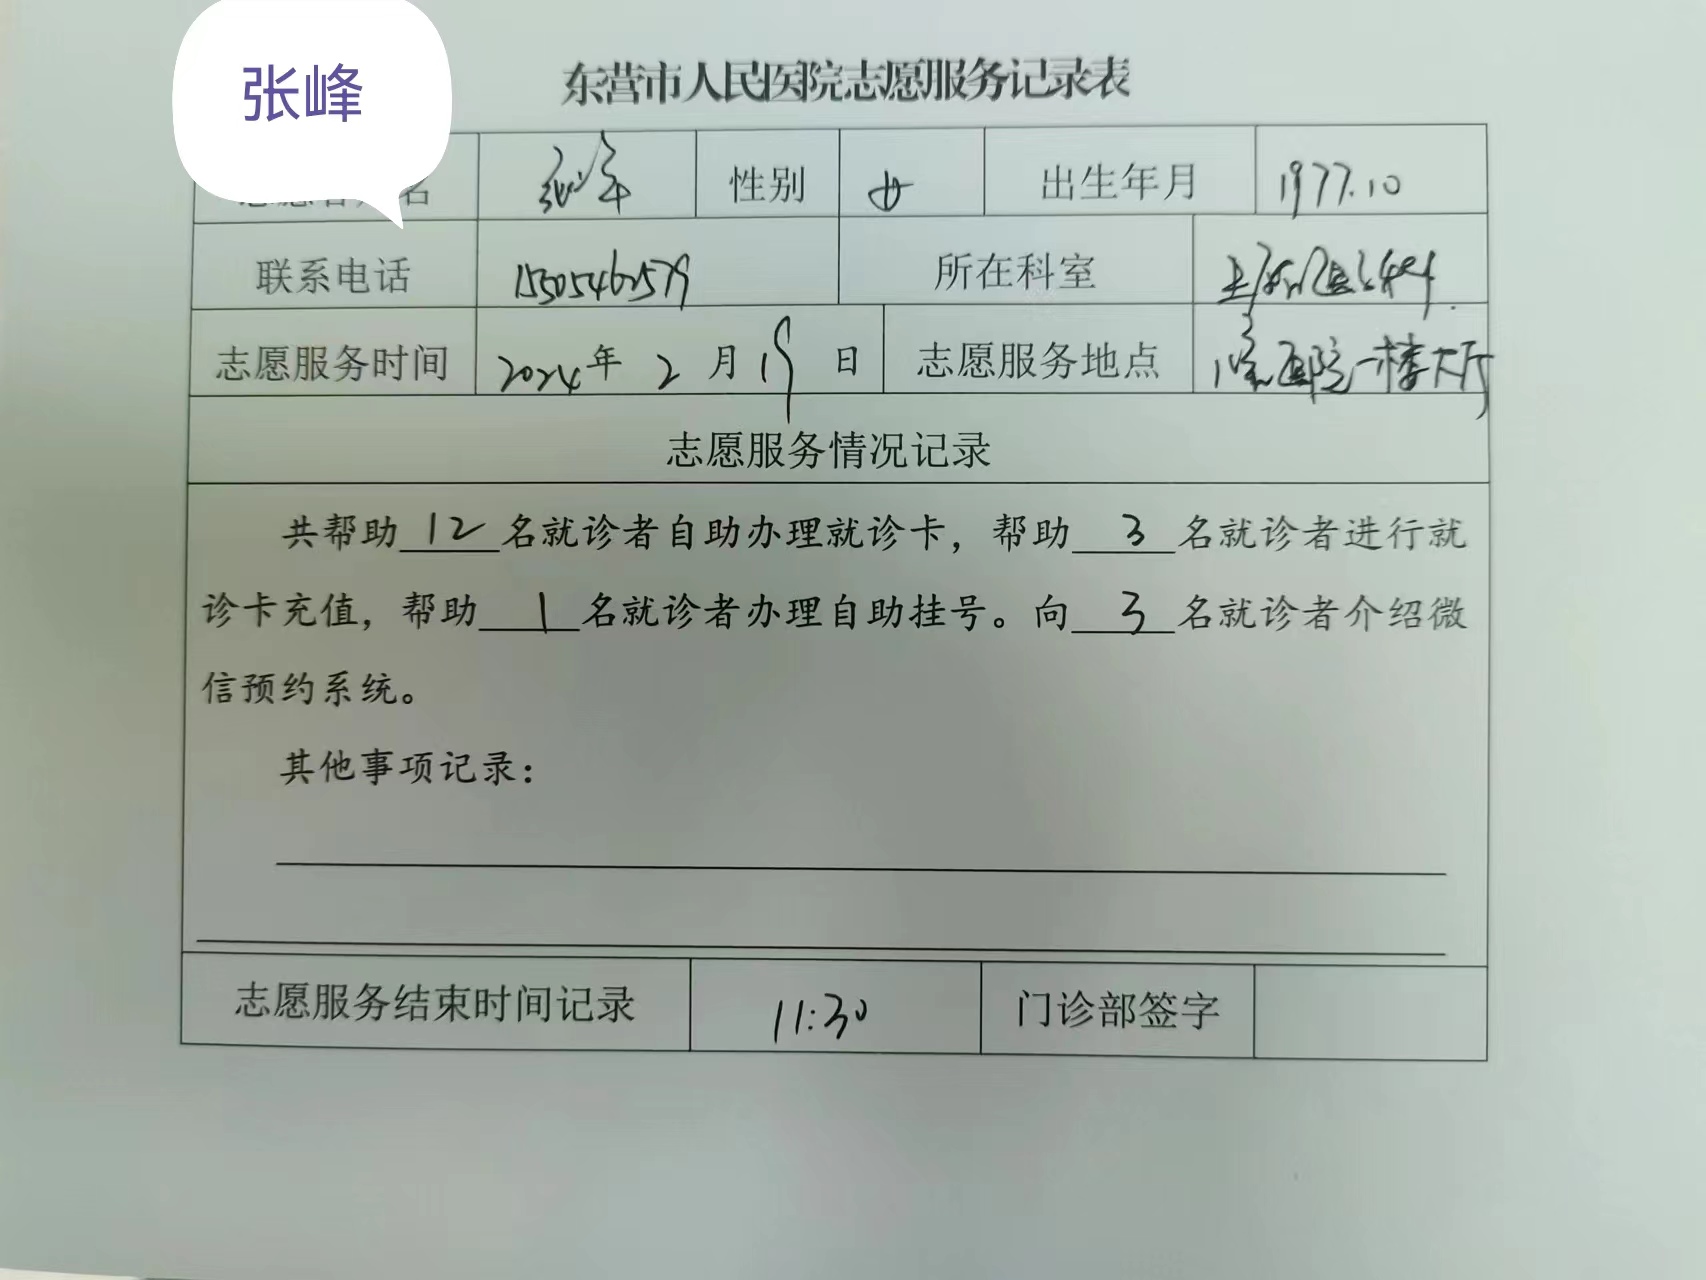 张峰
东营市人民医院志愿服务记录表
名 性别 女 出生年月 1977.10
联系电话 15505462579 所在科室
志愿服务时间 2024年 2 月 19 日 志愿服务地点 医院一楼大厅
志愿服务情况记录
共帮助 12 名就诊者自助办理就诊卡，帮助 3 名就诊者进行就
诊卡充值，帮助 1 名就诊者办理自助挂号。向 3 名就诊者介绍微
信预约系统。
其他事项记录：
志愿服务结束时间记录 11:30 门诊部签字